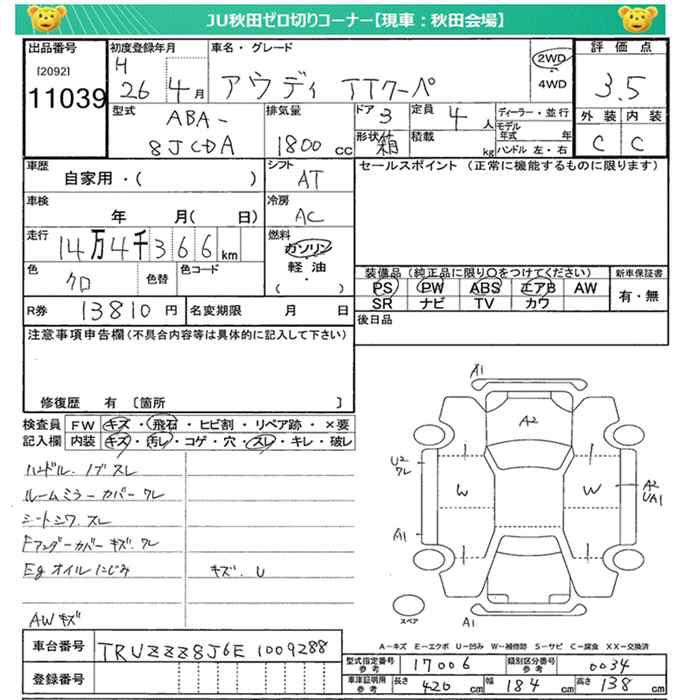 JU秋田ゼロ切りコーナー【現車：秋田会場】
出品番号
[2092]
11039
初度登録年月
H 26 4月
車名・グレード
アウディ TTクーペ
2WD
4WD
評価点
3.5
外装 内装
C C
型式
ABA-
8JCDA
排気量
1800cc
ドア 3
定員 4人
形状 箱
積載 kg
ディーラー・並行
モデル年式 年
ハンドル 左・右
車歴
自家用・( )
シフト
AT
セールスポイント (正常に機能するものに限ります)
車検
年 月( 日)
冷房
AC
走行
14万4千366km
燃料
ガソリン
軽油
( ・ )
色
クロ
色替
色コード
装備品 (純正品に限り○をつけてください)
PS PW ABS エアB AW
SR ナビ TV カワ
新車保証書
有・無
R券 13810円
名変期限 月 日
後日品
注意事項申告欄 (不具合内容等は具体的に記入して下さい)
修復歴 有 [箇所 ]
検査員記入欄
FW キズ・飛石・ヒビ割・リペア跡・×要
内装 キズ・汚レ・コゲ・穴・スレ・キレ・破レ
ハンドル．ノブ スレ
ルームミラーカバー ワレ
シートシワ．スレ
Fアンダーカバー キズ．ワレ
Egオイルにじみ
キズ．U
AWキズ
A1
A2
U2
ワレ
W
W
A2
UA1
A1
A1
スペア
A-キズ E-エクボ U-凹み W-補修跡 S-サビ C-腐食 XX-交換済
車台番号 TRUZZZ8J6E1009288
登録番号
型式指定番号 参考 17006
類別区分番号 参考 0034
車庫証明用 参考
長さ 420cm
幅 184cm
高さ 138cm